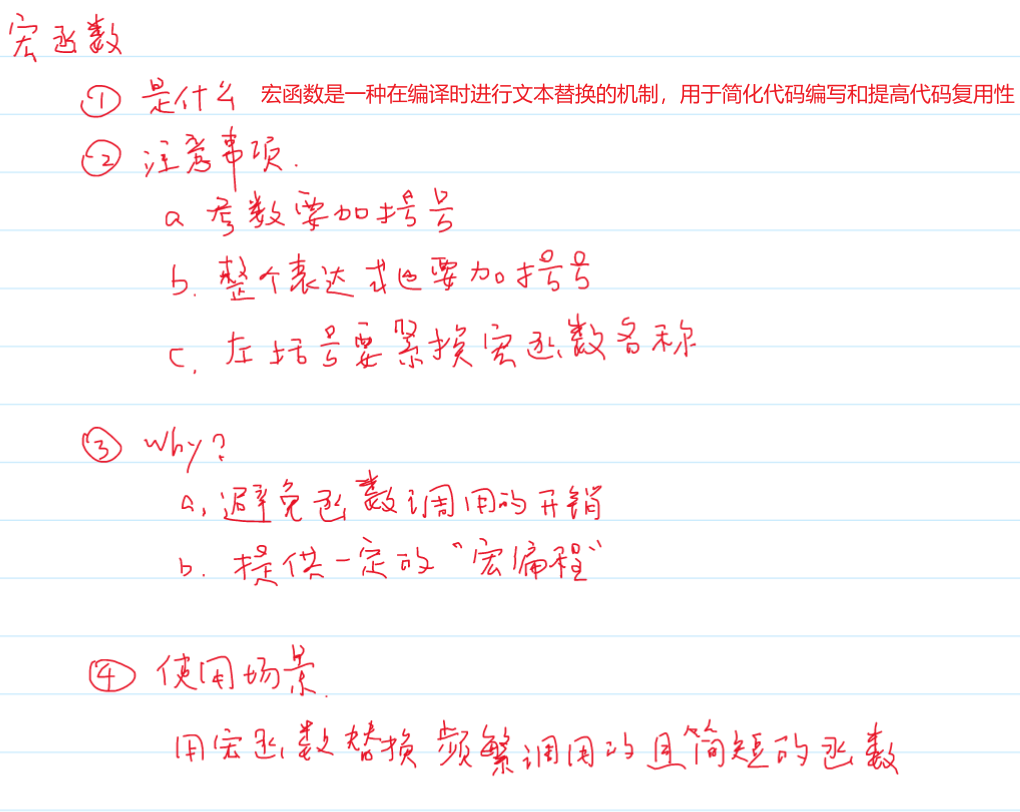 宏函数
① 是什么 宏函数是一种在编译时进行文本替换的机制，用于简化代码编写和提高代码复用性
② 注意事项.
a 参数要加括号
b. 整个表达式也要加括号
c. 左括号要紧挨宏函数名称
③ Why?
a. 避免函数调用的开销
b. 提供一定的“宏编程”
④ 使用场景.
用宏函数替换频繁调用的且简短的函数